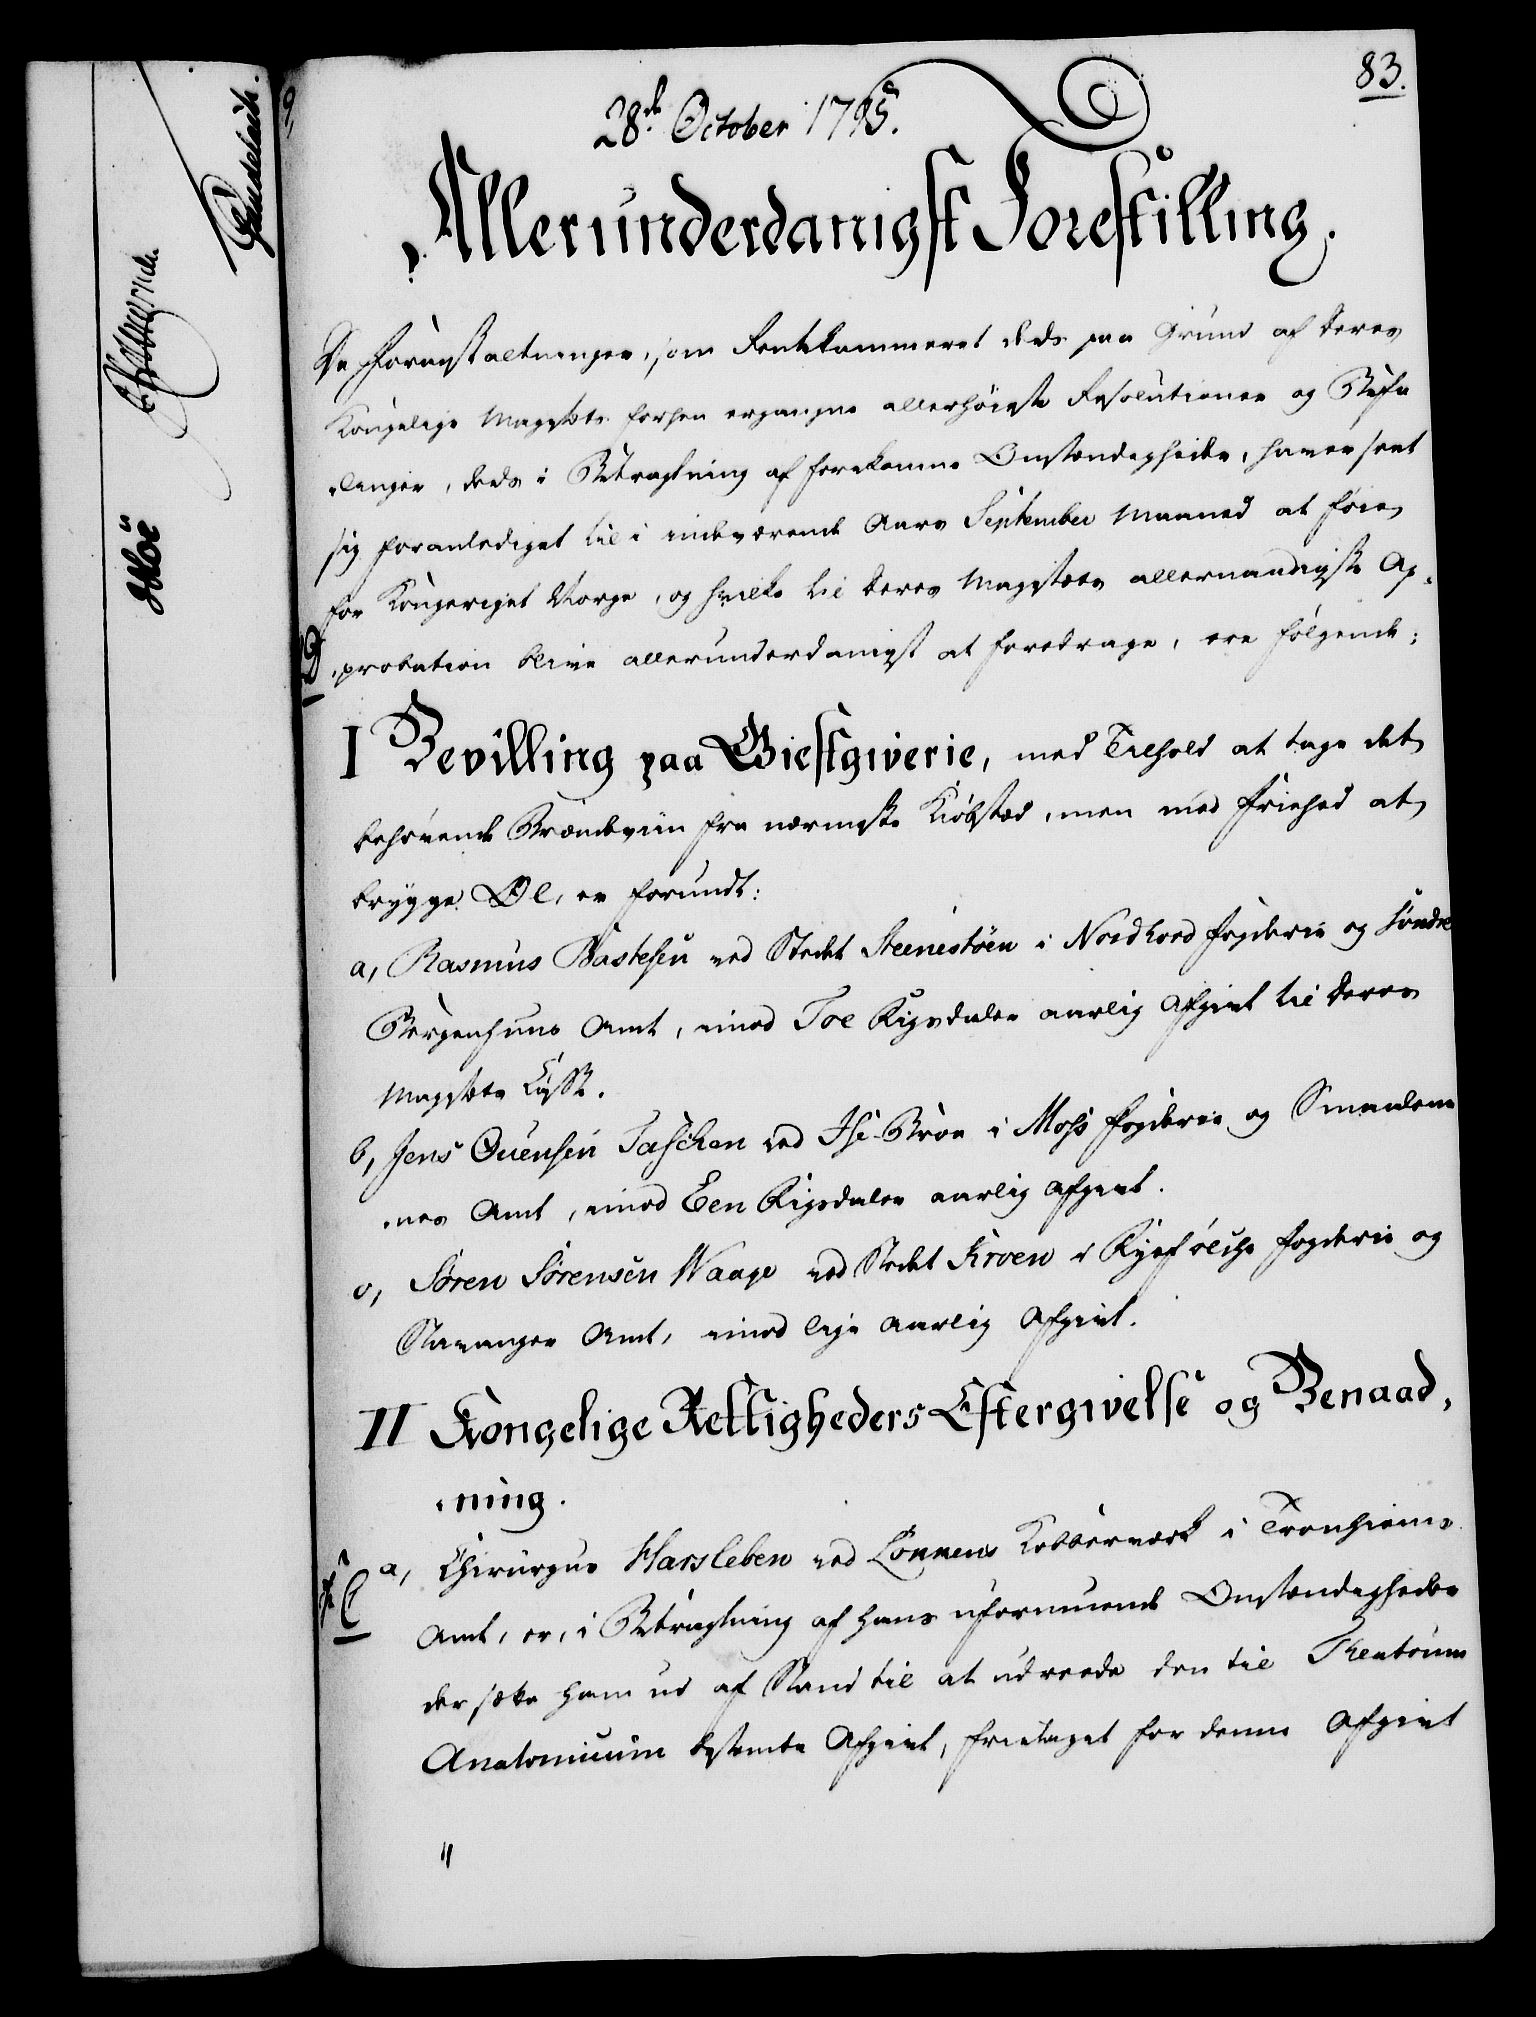 83.
28de October 1795.
Allerunderdanigst Forestilling.
De Foranstaltninger, som Rentekammeret deels paa Grund af Deres
Kongelige Majestæts forhen ergangne allerhöieste Resolutioner og Befa
linger, deels i Betragtning af forekomne Omstændigheder, haver seet
sig foranlediget til i indeværende Aars September Maaned at föie
for Kongeriget Norge, og hvilke til Deres Majestæts allernaadigste Ap-
probation blive allerunderdanigst at foredrage, ere fölgende:
I Bevilling paa Giestgiverie, med Tilhold at tage det
behövende Brændeviin fra nærmeste Kiöbstæd, men med Friehed at
brygge Öl, er forundt:
a, Rasmus Bastesen ved Stedet Steenestöen i Nordhord Fogderie og Söndre
Bergenhuus Amt, imod Toe Rigsdaler aarlig Afgivt til Deres
Majestæts Casse.
b, Jens Ouensen Taschen ved Ise-Broe i Moss Fogderie og Smaalene
nes Amt, imod Een Rigsdaler aarlig Afgivt.
c, Sören Sörensen Waage ved Stedet Kroen i Ryefölche Fogderie og
Stavanger Amt, imod lige aarlig Afgivt.
II Kongelige Rettigheders Eftergivelse og Benaad,
ning.
a, Chirurgus Harsleben ved Lönnens Kobberværk i Tronhiems
Amt, er, i Betragtning af hans uformuende Omstændigheder
der sætte ham ud af Stand til at udreede den til Theatrum
Anatomicum bestemte Afgivt, fritaget for denne Afgivt
"